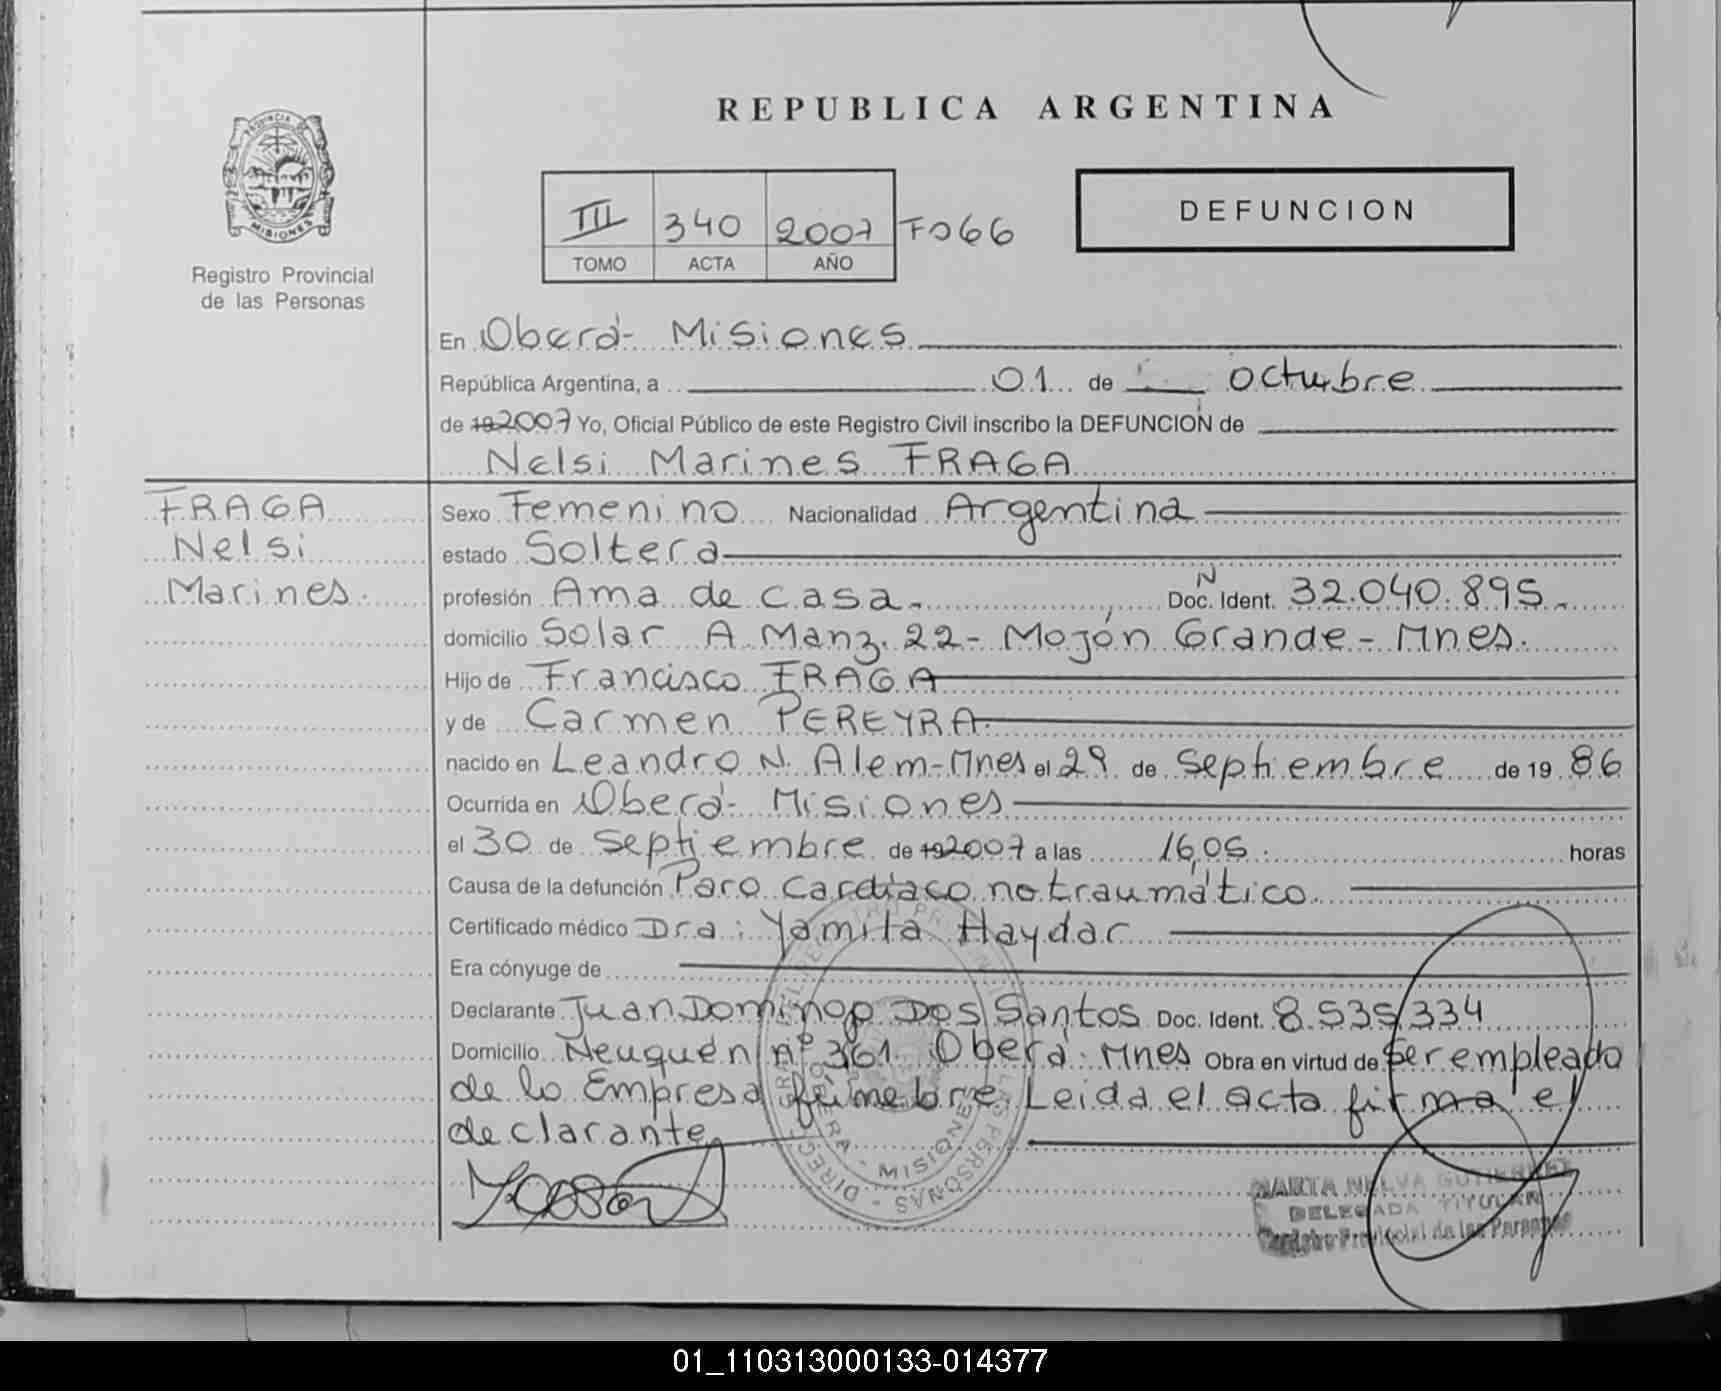 REPUBLICA ARGENTINA
PROVINCIA DE
MISIONES
Registro Provincial
de las Personas
III 340 2007 Fº 66
TOMO ACTA AÑO
DEFUNCION
En Oberá- Misiones
República Argentina, a 01 de octubre
de 192007 Yo, Oficial Público de este Registro Civil inscribo la DEFUNCION de
Nelsi Marines FRAGA
FRAGA
Nelsi
Marines.
Sexo Femenino Nacionalidad Argentina
estado Soltera
profesión Ama de casa. N Doc. Ident. 32.040.895.
domicilio Solar A Manz. 22- Mojón Grande- Mnes.
Hijo de Francisco FRAGA
y de Carmen PEREYRA.
nacido en Leandro N. Alem-Mnes el 29 de Septiembre de 19 86
Ocurrida en Oberá- Misiones
el 30 de Septiembre de 192007 a las 16,05. horas
Causa de la defunción Paro cardíaco no traumático.
Certificado médico Dra: Yamila Haydar
Era cónyuge de
Declarante Juan Domingo Dos Santos Doc. Ident. 8.535.334
Domicilio Neuquén nº 361. Oberá. Mnes Obra en virtud de Ser empleado
de la Empresa fúnebre. Leida el acta firma el
declarante.
MISIONES
MARTA NELVA GUTIERREZ
DELEGADA TITULAR
Registro Provincial de las Personas
01_110313000133-014377